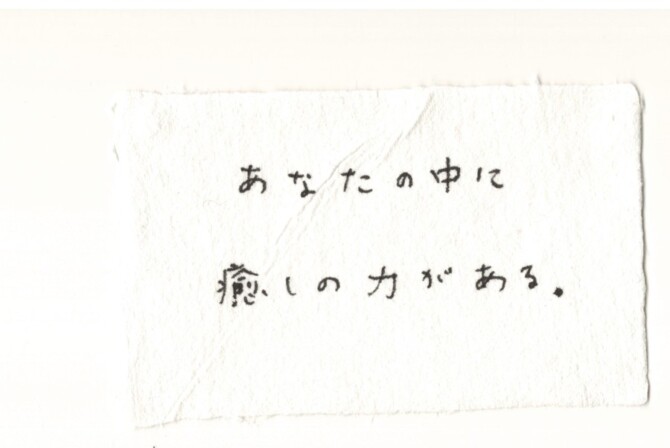 あなたの中に
癒しの力がある.